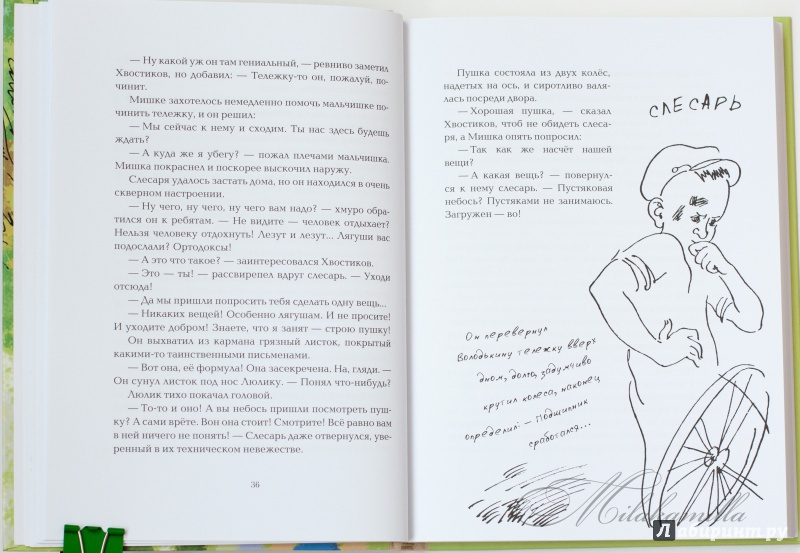 — Ну какой уж он там гениальный, — ревниво заметил
Хвостиков, но добавил: — Тележку-то он, пожалуй, по-
чинит.
Мишке захотелось немедленно помочь мальчишке по-
чинить тележку, и он решил:
— Мы сейчас к нему и сходим. Ты нас здесь будешь
ждать?
— А куда же я убегу? — пожал плечами мальчишка.
Мишка покраснел и поскорее выскочил наружу.
Слесаря удалось застать дома, но он находился в очень
скверном настроении.
— Ну чего, ну чего, ну чего вам надо? — хмуро обра-
тился он к ребятам. — Не видите — человек отдыхает?
Нельзя человеку отдохнуть! Лезут и лезут... Лягуши вас
подослали? Ортодоксы!
— А это что такое? — заинтересовался Хвостиков.
— Это — ты! — рассвирепел вдруг слесарь. — Уходи
отсюда!
— Да мы пришли попросить тебя сделать одну вещь...
— Никаких вещей! Особенно лягушам. И не просите!
И уходите добром! Знаете, что я занят — строю пушку!
Он выхватил из кармана грязный листок, покрытый
какими-то таинственными письменами.
— Вот она, её формула! Она засекречена. На, гляди. —
Он сунул листок под нос Люлику. — Понял что-нибудь?
Люлик тихо покачал головой.
— То-то и оно! А вы небось пришли посмотреть пуш-
ку? А сами врёте. Вон она стоит! Смотрите! Всё равно вам
в ней ничего не понять! — Слесарь даже отвернулся, уве-
ренный в их техническом невежестве.
36
Пушка состояла из двух колёс,
надетых на ось, и сиротливо валя-
лась посреди двора.
— Хорошая пушка, — сказал
Хвостиков, чтоб не обидеть слеса-
ря, а Мишка опять попросил:
— Так как же насчёт нашей
вещи?
— А какая вещь? — повернул-
ся к нему слесарь. — Пустяковая
небось? Пустяками не занимаюсь.
Загружен — во!
СЛЕСАРЬ
Он перевернул
Володькину тележку вверх
дном, долго, задумчиво
крутил колеса, наконец
определил: — Подшипник
сработался...
Milakamilla
Лабиринт.ру